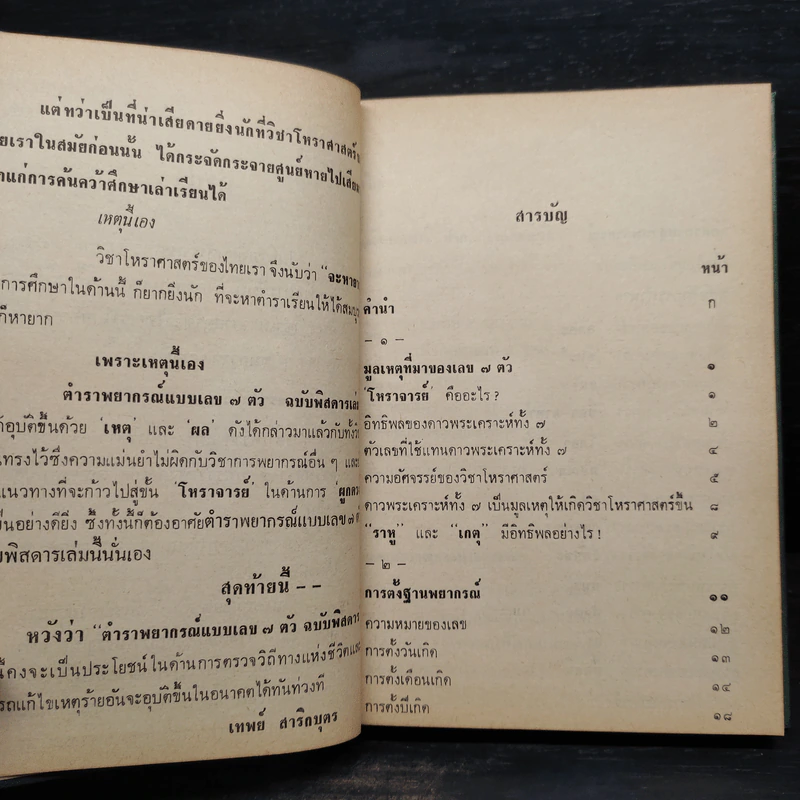 แต่ทว่าเป็นที่น่าเสียดายยิ่งนักที่วิชาโหราศาสตร์
ยเราในสมัยก่อนนั้น ได้กระจัดกระจายศูนย์หายไปเสีย
แก่การค้นคว้าศึกษาเล่าเรียนได้
เหตุนี้เอง
วิชาโหราศาสตร์ของไทยเรา จึงนับว่า "จะหา
การศึกษาในด้านนี้ ก็ยากยิ่งนัก ที่จะหาตำราเรียนให้ได้สม
ก็หายาก
เพราะเหตุนี้เอง
ตำราพยากรณ์แบบเลข ๗ ตัว ฉบับพิสดารเล่ม
อุบัติขึ้นด้วย 'เหตุ' และ 'ผล' ดังได้กล่าวมาแล้วกับทั้ง
ทรงไว้ซึ่งความแม่นยำไม่ผิดกับวิชาการพยากรณ์อื่น ๆ และ
แนวทางที่จะก้าวไปสู่ขั้น 'โหราจารย์' ในด้านการ 'ผูก
ป็นอย่างดียิ่ง ซึ่งทั้งนี้ก็ต้องอาศัยตำราพยากรณ์แบบเลข ๗ ตัว
พิสดารเล่มนี้นั่นเอง
สุดท้ายนี้ – –
หวังว่า "ตำราพยากรณ์แบบเลข ๗ ตัว ฉบับพิสดาร
นี้คงจะเป็นประโยชน์ในด้านการตรวจวิถีทางแห่งชีวิตและ
รถแก้ไขเหตุร้ายอันจะอุบัติขึ้นในอนาคตได้ทันท่วงที
เทพย์ สาริกบุตร
สารบัญ
หน้า
คำนำ ก
– ๑ –
มูลเหตุที่มาของเลข ๗ ตัว ๑
'โหราจารย์' คืออะไร ? ๑
อิทธิพลของดาวพระเคราะห์ทั้ง ๗ ๒
ตัวเลขที่ใช้แทนดาวพระเคราะห์ทั้ง ๗ ๔
ความอัศจรรย์ของวิชาโหราศาสตร์ ๕
ดาวพระเคราะห์ทั้ง ๗ เป็นมูลเหตุให้เกิดวิชาโหราศาสตร์ขึ้น ๘
"ราหู" และ "เกตุ" มีอิทธิพลอย่างไร ! ๙
– ๒ –
การตั้งฐานพยากรณ์ ๑๑
ความหมายของเลข ๑๒
การตั้งวันเกิด ๑๓
การตั้งเดือนเกิด ๑๔
การตั้งปีเกิด ๑๘